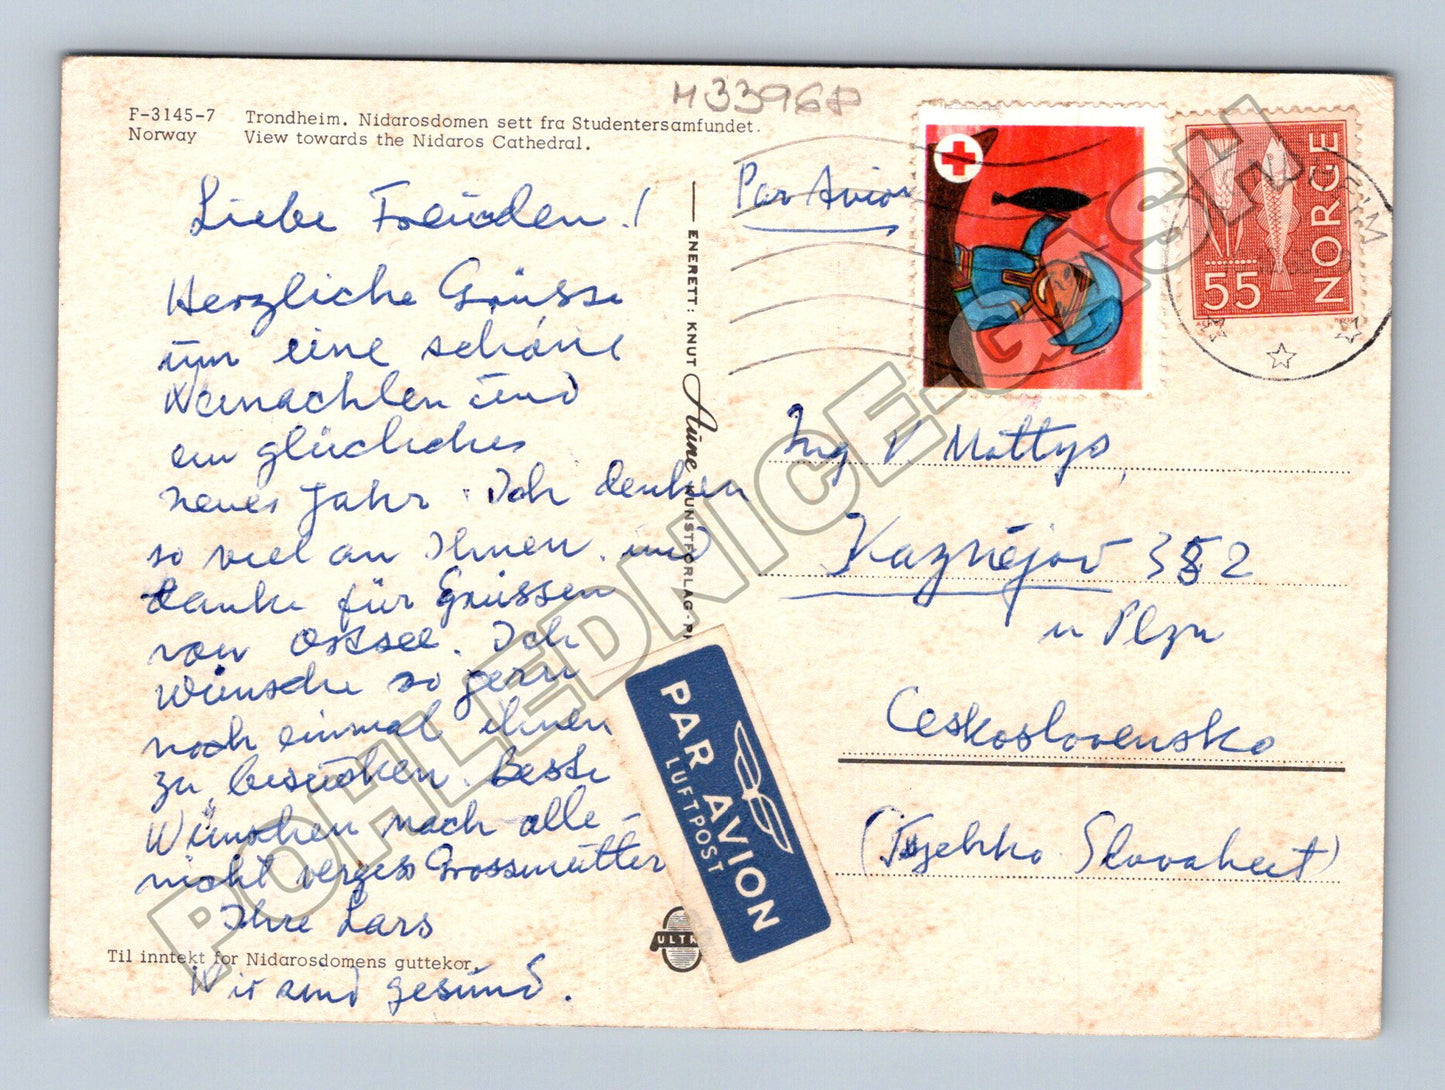 M33968
F-3145-7 Trondheim. Nidarosdomen sett fra Studentersamfundet.
Norway View towards the Nidaros Cathedral.
Liebe Freunden!
Herzliche Grüsse
um eine schöne
Weinachten und
ein glückliches
neues Jahr. Ich denken
so viel an Ihnen. und
danke für Grüssen
von Ostsee. Ich
wünsche so gern
noch einmal ihnen
zu besuchen. Beste
Wünschen nach alle -
nicht verges Grossmutter
Ihre Lars
Til inntekt for Nidarosdomens guttekor.
Wir sind gesund.
ENERETT: KNUT Aune KUNSTFORLAG
ULTRA
Par Avion
NORGE
55
Ing V Mattys,
Kaznějov 352
u Plzn
Ceskoslovensko
(Tsjekko Slovakeet)
PAR AVION
LUFTPOST
POHLEDNICE-GASH